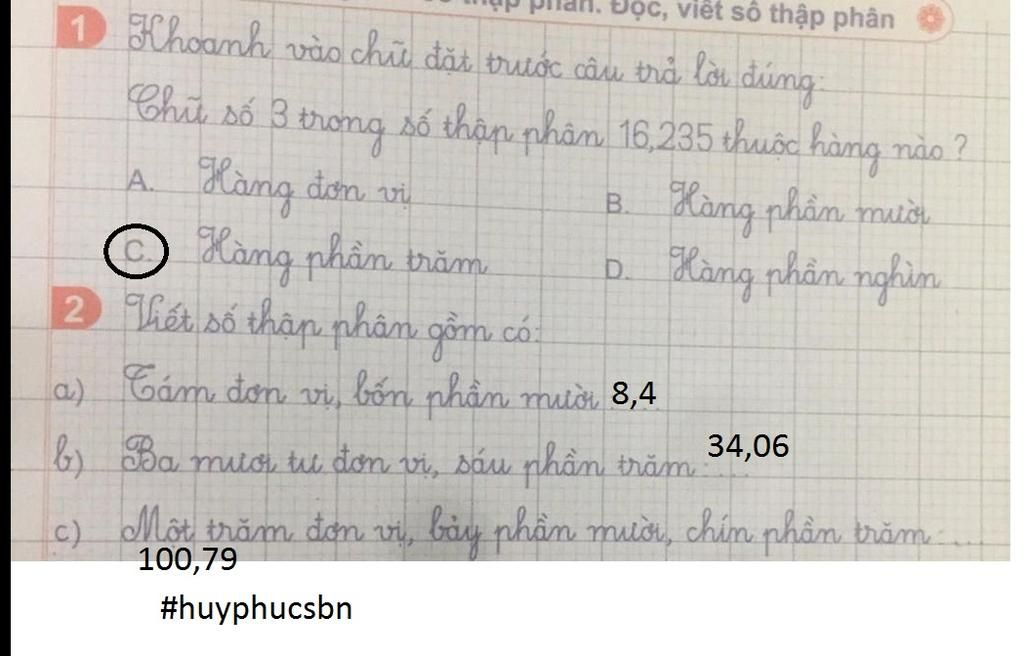 thập phân. Đọc, viết số thập phân
1 Khoanh vào chữ đặt trước câu trả lời đúng:
Chữ số 3 trong số thập phân 16,235 thuộc hàng nào?
A. Hàng đơn vị B. Hàng phần mười
C. Hàng phần trăm D. Hàng phần nghìn
2 Viết số thập phân gồm có:
a) Tám đơn vị, bốn phần mười 8,4
b) Ba mươi tư đơn vị, sáu phần trăm ... 34,06
c) Một trăm đơn vị, bảy phần mười, chín phần trăm: ...
100,79
#huyphucsbn